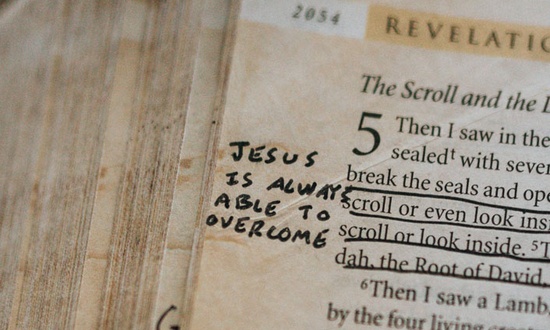 2054 REVELATIO
The Scroll and the L
5 Then I saw in the
sealed† with seve
break the seals and ope
scroll or even look ins
scroll or look inside. ⁵T
dah, the Root of David,
⁶Then I saw a Lamb,
by the four living
JESUS
IS ALWAYS
ABLE TO
OVERCOME